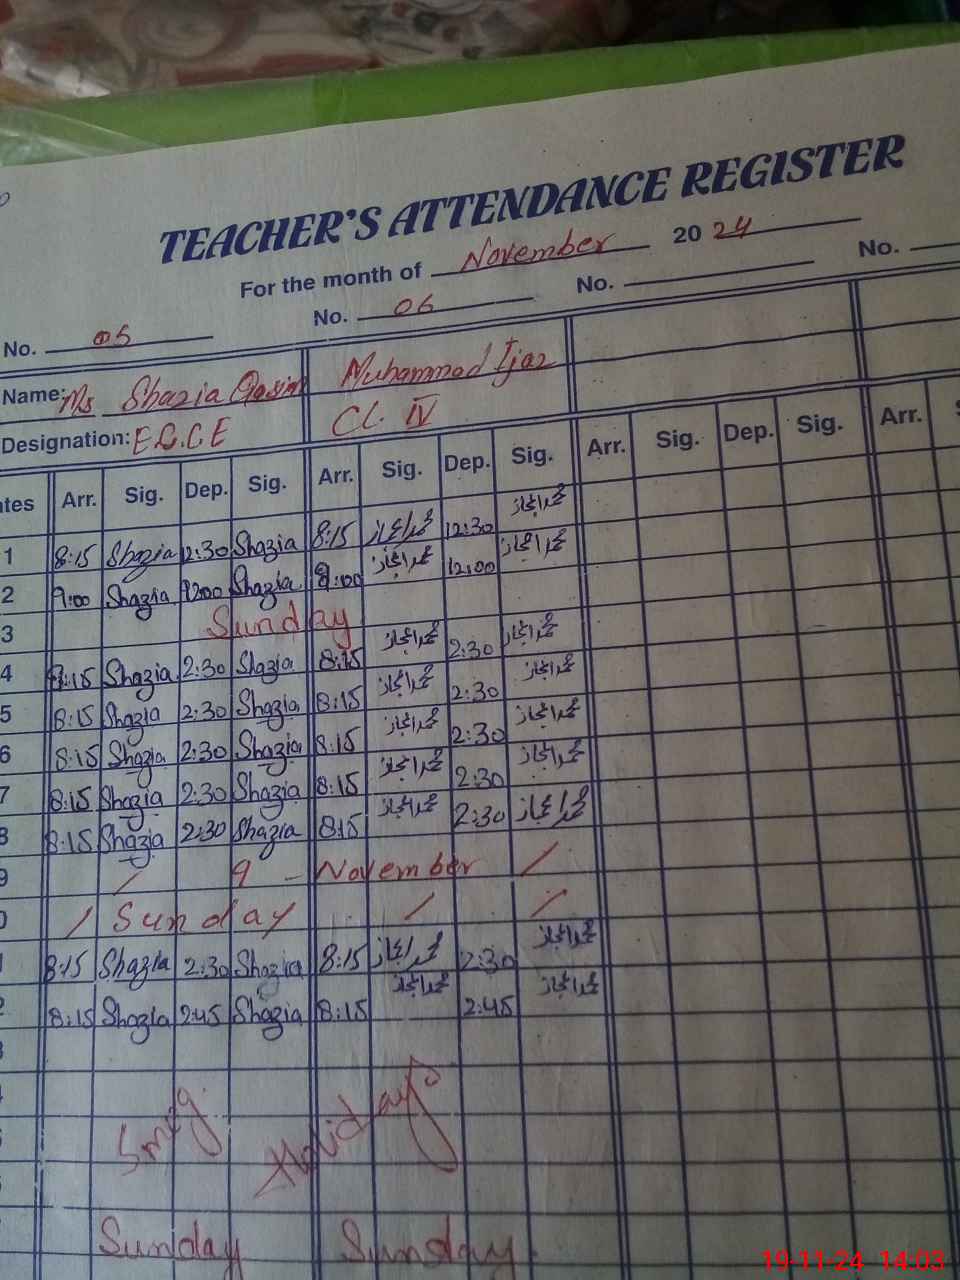 TEACHER'S ATTENDANCE REGISTER
For the month of November 20 24
No. 05 No. 06 No. No.
Name: Ms Shazia Qasim Muhammad Ijaz
Designation: E.C.C.E Cl. IV
tes Arr. Sig. Dep. Sig. Arr. Sig. Dep. Sig. Arr. Sig. Dep. Sig. Arr.
1 8:15 Shazia 12:30 Shazia 8:15 محمد اعجاز 12:30 محمد اعجاز
2 9:00 Shazia 12:00 Shazia 9:00 محمد اعجاز 12:00 محمد اعجاز
3 Sunday
4 8:15 Shazia 2:30 Shazia 8:15 محمد اعجاز 2:30 محمد اعجاز
5 8:15 Shazia 2:30 Shazia 8:15 محمد اعجاز 2:30 محمد اعجاز
6 8:15 Shazia 2:30 Shazia 8:15 محمد اعجاز 2:30 محمد اعجاز
7 8:15 Shazia 2:30 Shazia 8:15 محمد اعجاز 2:30 محمد اعجاز
8 8:15 Shazia 2:30 Shazia 8:15 محمد اعجاز 2:30 محمد اعجاز
9 / 9 - November /
0 / Sunday / /
1 8:15 Shazia 2:30 Shazia 8:15 محمد اعجاز 2:30 محمد اعجاز
2 8:15 Shazia 2:45 Shazia 8:15 محمد اعجاز 2:45 محمد اعجاز
Smog Holidays
Sunday Sunday
19-11-24 14:03